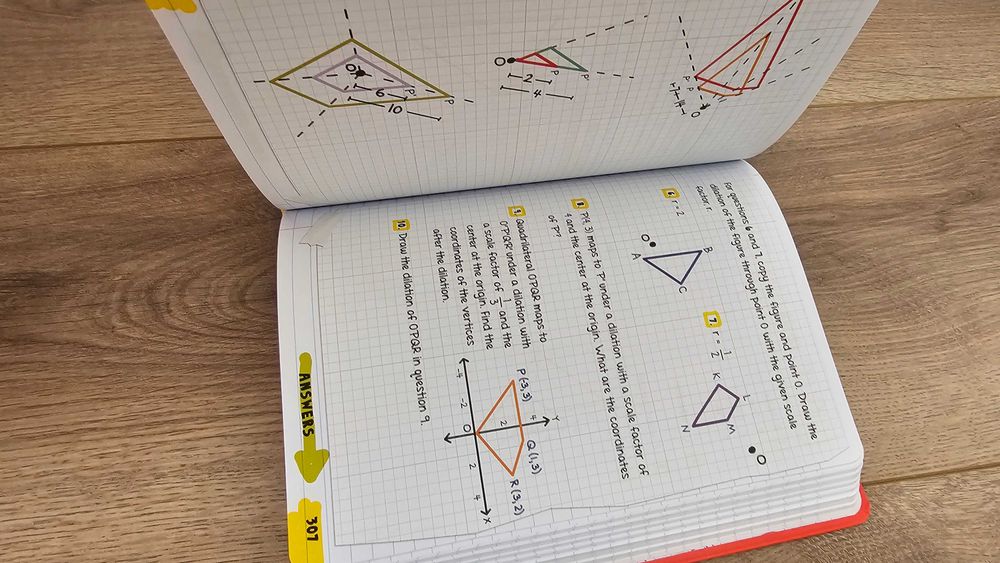 O
P'
P
6
10
O
P'
P
2
4
P'
P
O
7
14
For questions 6 and 7, copy the figure and point O. Draw the
dilation of the figure through point O with the given scale
factor, r.
6. r = 2
O
A
B
C
7. r = 1/2
K
L
M
N
O
8. P(4, 3) maps to P' under a dilation with a scale factor of
4 and the center at the origin. What are the coordinates
of P'?
9. Quadrilateral OPQR maps to
O'P'Q'R' under a dilation with
a scale factor of 1/3 and the
center at the origin. Find the
coordinates of the vertices
after the dilation.
P(-3,3)
Q (1,3)
R (3,2)
Y
4
2
-4
-2
O
2
4
X
10. Draw the dilation of O'P'Q'R' in question 9.
ANSWERS
307